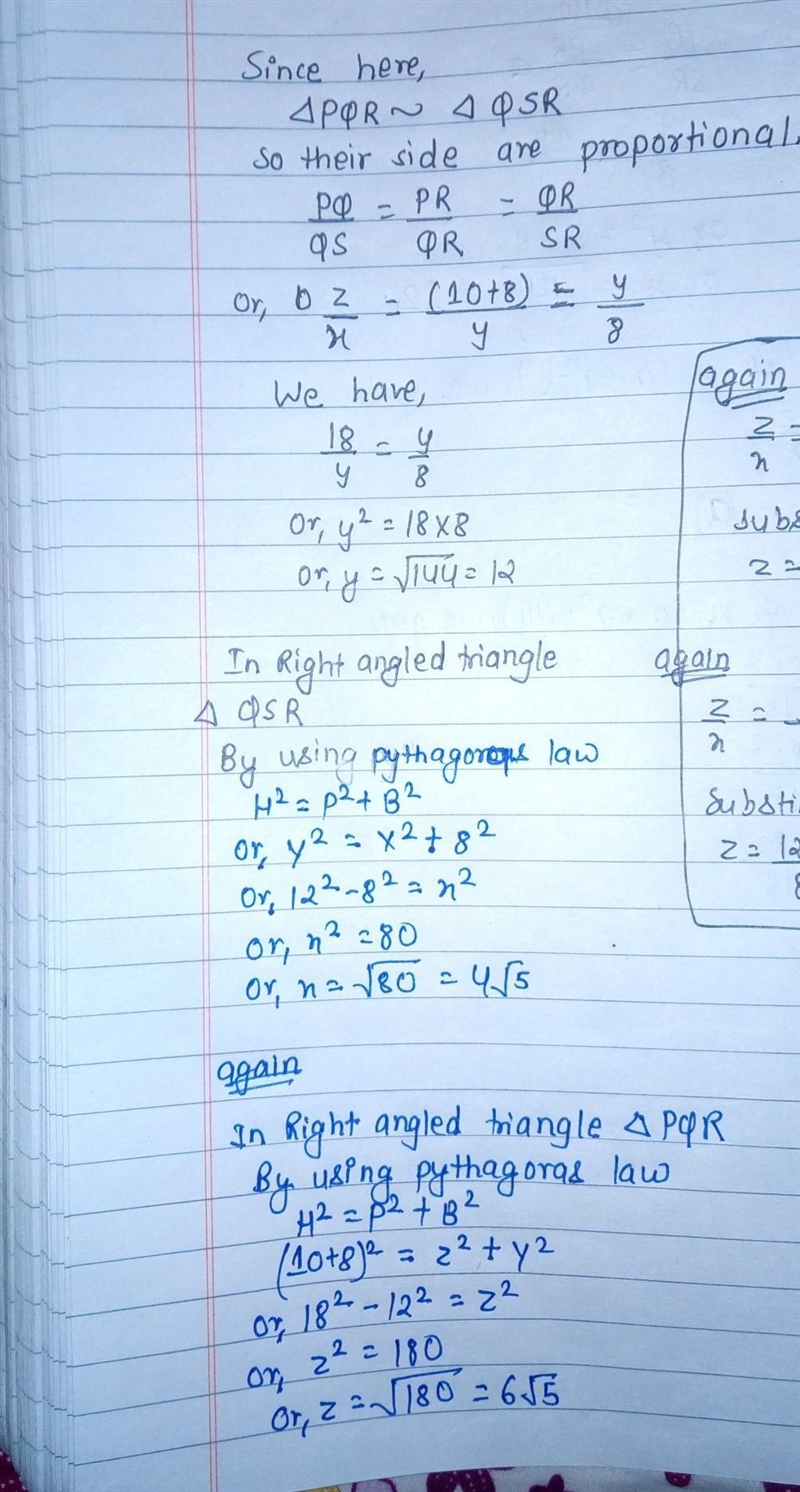 Since here,
△PQR ~ △ QSR
So their side are proportional.
PQ/QS = PR/QR = QR/SR
Or, z/x = (10+8)/y = y/8
We have,
18/y = y/8
Or, y² = 18×8
Or, y = √144 = 12
In Right angled triangle
△ QSR
By using pythagorous law
H² = P² + B²
Or, y² = x² + 8²
Or, 12² - 8² = x²
Or, x² = 80
Or, x = √80 = 4√5
again
In Right angled triangle △ PQR
By using pythagoras law
H² = P² + B²
(10+8)² = z² + y²
or, 18² - 12² = z²
or, z² = 180
Or, z = √180 = 6√5
again
z/x =
subs
z =
again
z/x =
Substi
z = 12